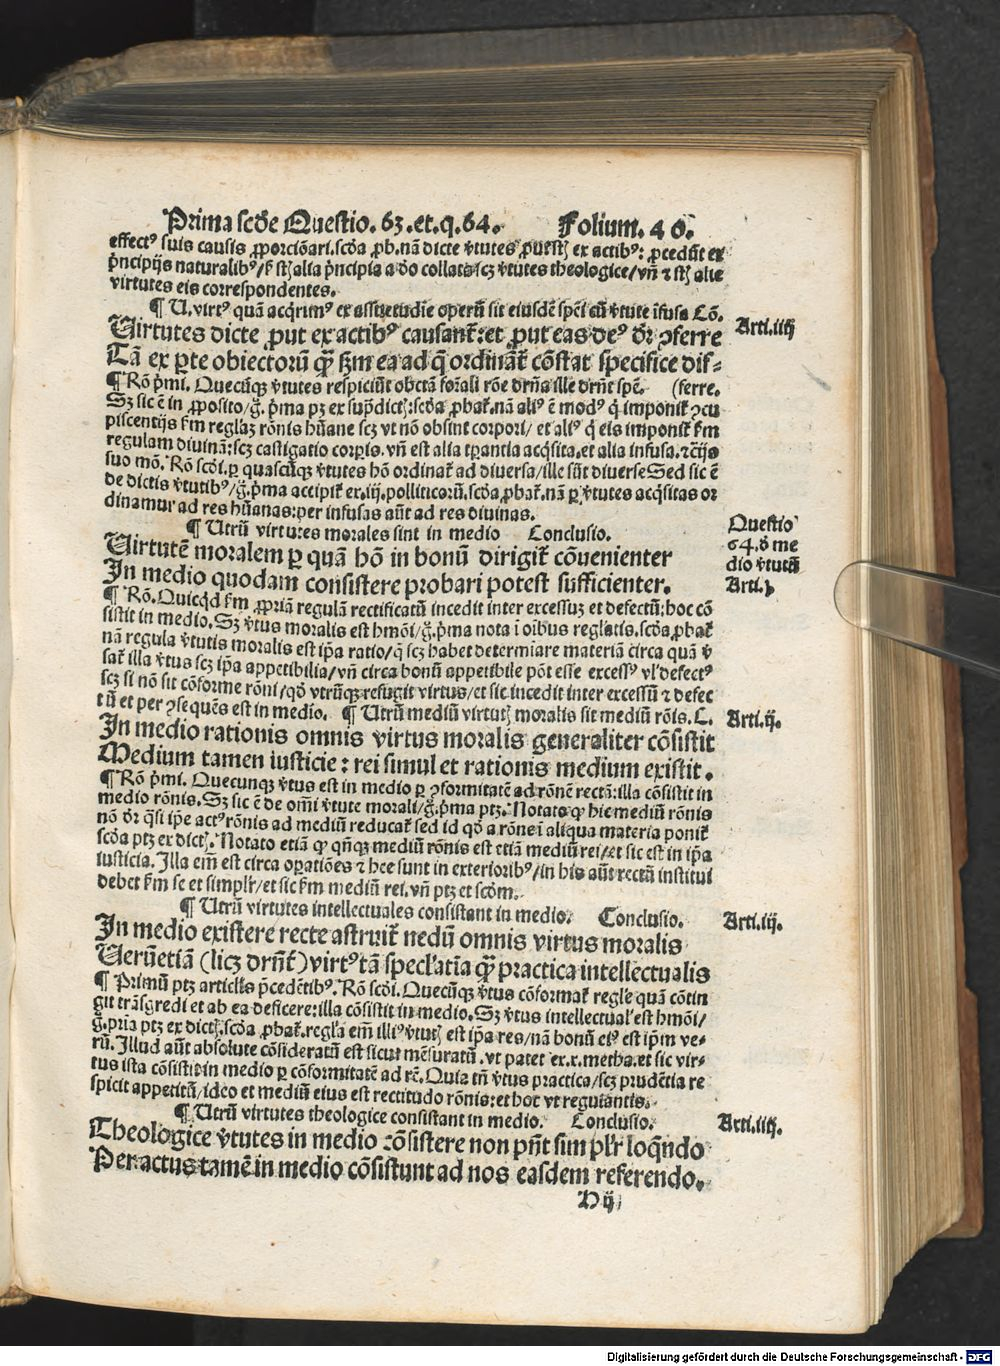 Prima scd̄e Questio. 63. et. q. 64. Folium. 40.
effectꝰ suis causis ꝓporciōari. scd̄a ꝓb. nā dicte v̄tutes ꝓut sūt ex actibꝰ: ꝓcedūt ex
p̄ncipijs naturalibꝰ/ sʒ st̄ alia p̄ncipia a deo collata scʒ v̄tutes theologice/ vn̄ ⁊ st̄ alie
virtutes eis correspondentes.
¶ U. virtꝰ quā acq̄rimꝰ ex assuetudīe operū sit eiusdē sp̄ci cū v̄tute īfusa Cō.
Virtutes dicte ꝓut ex actibꝰ causant᷑: et ꝓut eas deꝰ dr̄ ꝯferre
Tā ex ꝑte obiectorū qͣꝫ ẜm ea ad q̄ ordinant᷑ cōstat specifice dif-
¶ Rō p̄mi. Quecūqꝫ v̄tutes respiciūt obctā for̄ali rōe dr̄nā ille dr̄nt spē. (ferre.
Sʒ sic ē in ꝓposito/ g̊. p̄ma pʒ ex sup̄dict̄: scd̄a ꝓbat᷑. nā aliꝰ ē modꝰ q̄ imponit᷑ ꝯcu
piscentijs ẜm reglaʒ rōnis hūane scʒ vt nō obsint corpori/ et aliꝰ q̄ eis imponit᷑ ẜm
regulam diuinā: scʒ castigatio corꝑis. vn̄ est alia tꝑantia acq̄sita. et alia infusa. ⁊ c̄ijs
suo mō. Rō scd̄i. ꝑ quascūqꝫ v̄tutes hō ordinat᷑ ad diuersa/ ille sūt diuerse Sed sic ē
de dictis v̄tutibꝰ/ g̊. p̄ma accipit᷑ ex. iij. polliticorū. scd̄a ꝓbat᷑. nā ꝑ v̄tutes acq̄sitas or
dinamur ad res hūanas: per infusas aūt ad res diuinas.
¶ Utrū virtutes morales sint in medio Conclusio.
Virtutē moralem ꝑ quā hō in bonū dirigit᷑ cōuenienter
In medio quodam consistere probari potest sufficienter.
¶ Rō. Quicq̄d ẜm ꝓpriā regulā rectificatū incedit inter excessuʒ et defectū: hoc cō
sistit in medio. Sʒ v̄tus moralis est hmōi/ g̊. p̄ma nota ī oībus reglatis. scd̄a ꝓbat᷑
nā regula v̄tutis moralis est ip̄a ratio/ q̄ scʒ habet determīare materiā circa quā v̄
sat᷑ illa v̄tus scʒ ip̄a appetibilia/ vn̄ circa bonū appetibile pōt esse excessꝰ vl' defectꝰ
scʒ si nō sit cōforme rōni/ qd̄ vtrūqꝫ refugit virtus/ et sic incedit inter excessū ⁊ defec
tū et per ꝯsequēs est in medio. ¶ Utrū mediū virtut̄ moralis sit mediū rōis. C.
In medio rationis omnis virtus moralis generaliter cōsistit
Medium tamen iusticie: rei simul et rationis medium existit.
¶ Rō p̄mi. Quecunqꝫ v̄tus est in medio ꝑ ꝯformitatē ad rōnē rectā: illa cōsistit in
medio rōnis. Sʒ sic ē de omī v̄tute morali/ g̊. p̄ma ptʒ. Notato ꝙ hic mediū rōnis
nō dr̄ q̄si ip̄e actꝰ rōnis ad mediū reducat᷑ sed id qd̄ a rōne ī aliqua materia ponit᷑
scd̄a ptʒ ex dict̄. Notato etiā ꝙ qn̄qꝫ mediū rōnis est etiā mediū rei/ et sic est in ip̄a
iusticia. Illa em̄ est circa oꝑatiōes ⁊ hec sunt in exterioribꝰ/ in his aūt rectū institui
debet ẜm se et simplr̄/ et sic ẜm mediū rei. vn̄ ptʒ et scd̄m.
¶ Utrū virtutes intellectuales consistant in medio. Conclusio.
In medio existere recte astruit᷑ nedū omnis virtus moralis
Verūetiā (licʒ dr̄nt᷑) virtꝰ tā specl'atīa qͣꝫ practica intellectualis
¶ Primū ptʒ articl'is p̄cedētibꝰ. Rō scd̄i. Quecūqꝫ v̄tus cōformat᷑ regl'e quā cōtin
git trāsgredi et ab ea deficere: illa cōsistit in medio. Sʒ v̄tus intellectual' est hmōi/
g̊. pria ptʒ ex dict̄. scd̄a ꝓbat᷑. regl'a em̄ illiꝰ v̄tut̄ est ip̄a res/ nā bonū eiꝰ est ip̄m ve-
rū. Illud aūt absolute cōsideratū est sicut mēsuratū. vt patet ex. x. metha. et sic vir-
tus ista cōsistit in medio ꝑ cōformitatē ad rē. Quia tn̄ v̄tus practica/ scʒ prudētia re
spicit appetitū/ ideo et mediū eius est rectitudo rōnis: et hoc vt regulantis.
¶ Utrū virtutes theologice consistant in medio. Conclusio.
Theologice v̄tutes in medio cōsistere non pn̄t simplr̄ loq̄ndo
Per actus tamē in medio cōsistunt ad nos easdem referendo.
H ij
Arti. iiij
Questio
64. d̄ me
dio v̄tutū
Arti. j
Arti. ij.
Arti. iij.
Arti. iiij.
Digitalisierung gefördert durch die Deutsche Forschungsgemeinschaft - DFG